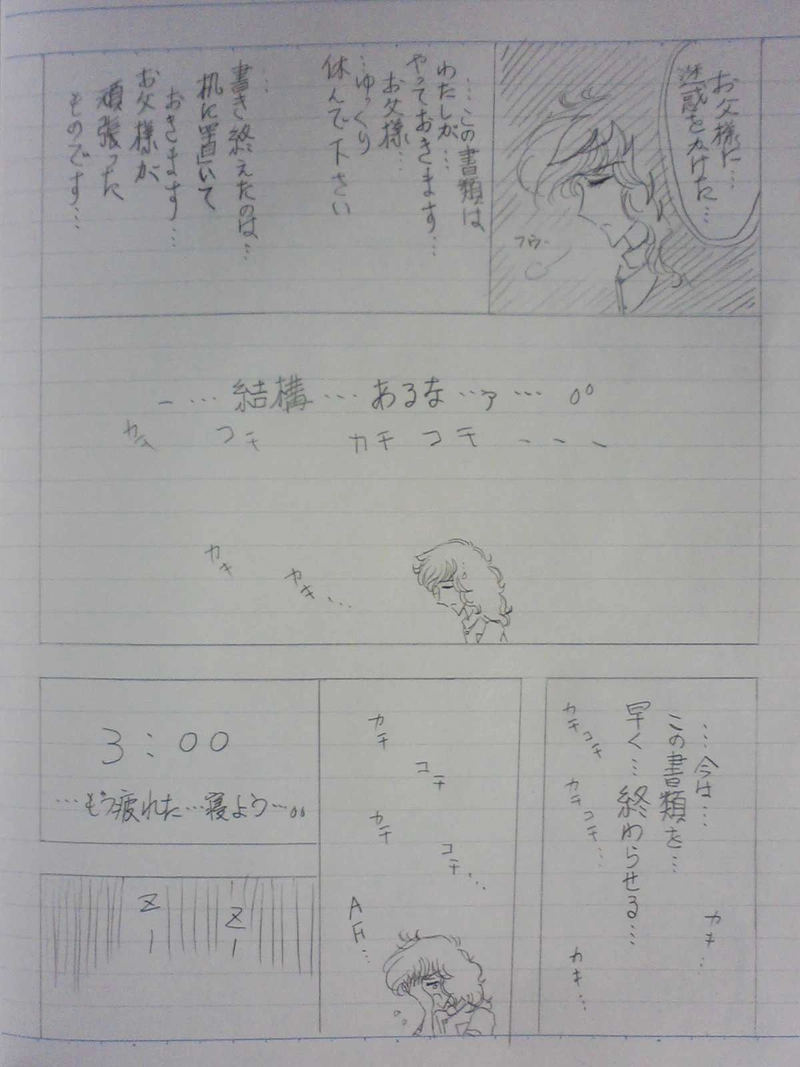 お父様に…
迷惑をかけた…
フウ…
…この書類は
わたしが…
やっておきます…
お父様…
…ゆっくり
休んで下さい
…
書き終えたのは…
机に置いて
おきます…
お父様が
頑張った
ものです…
ー…結構…あるな…ァ…
カチ コチ カチ コチ 、、、
カキ
カキ…
…今は…
この書類を…
早く…終わらせる…
カチコチ
カチコチ…
カキ…
カキ…
カチ
コチ
カチ
コチ…
3:00
…もう疲れた…寝よう…。。
Zー
Zー